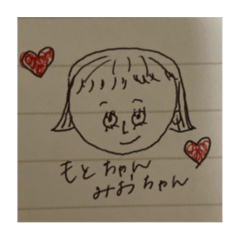 もとちゃん
みおちゃん